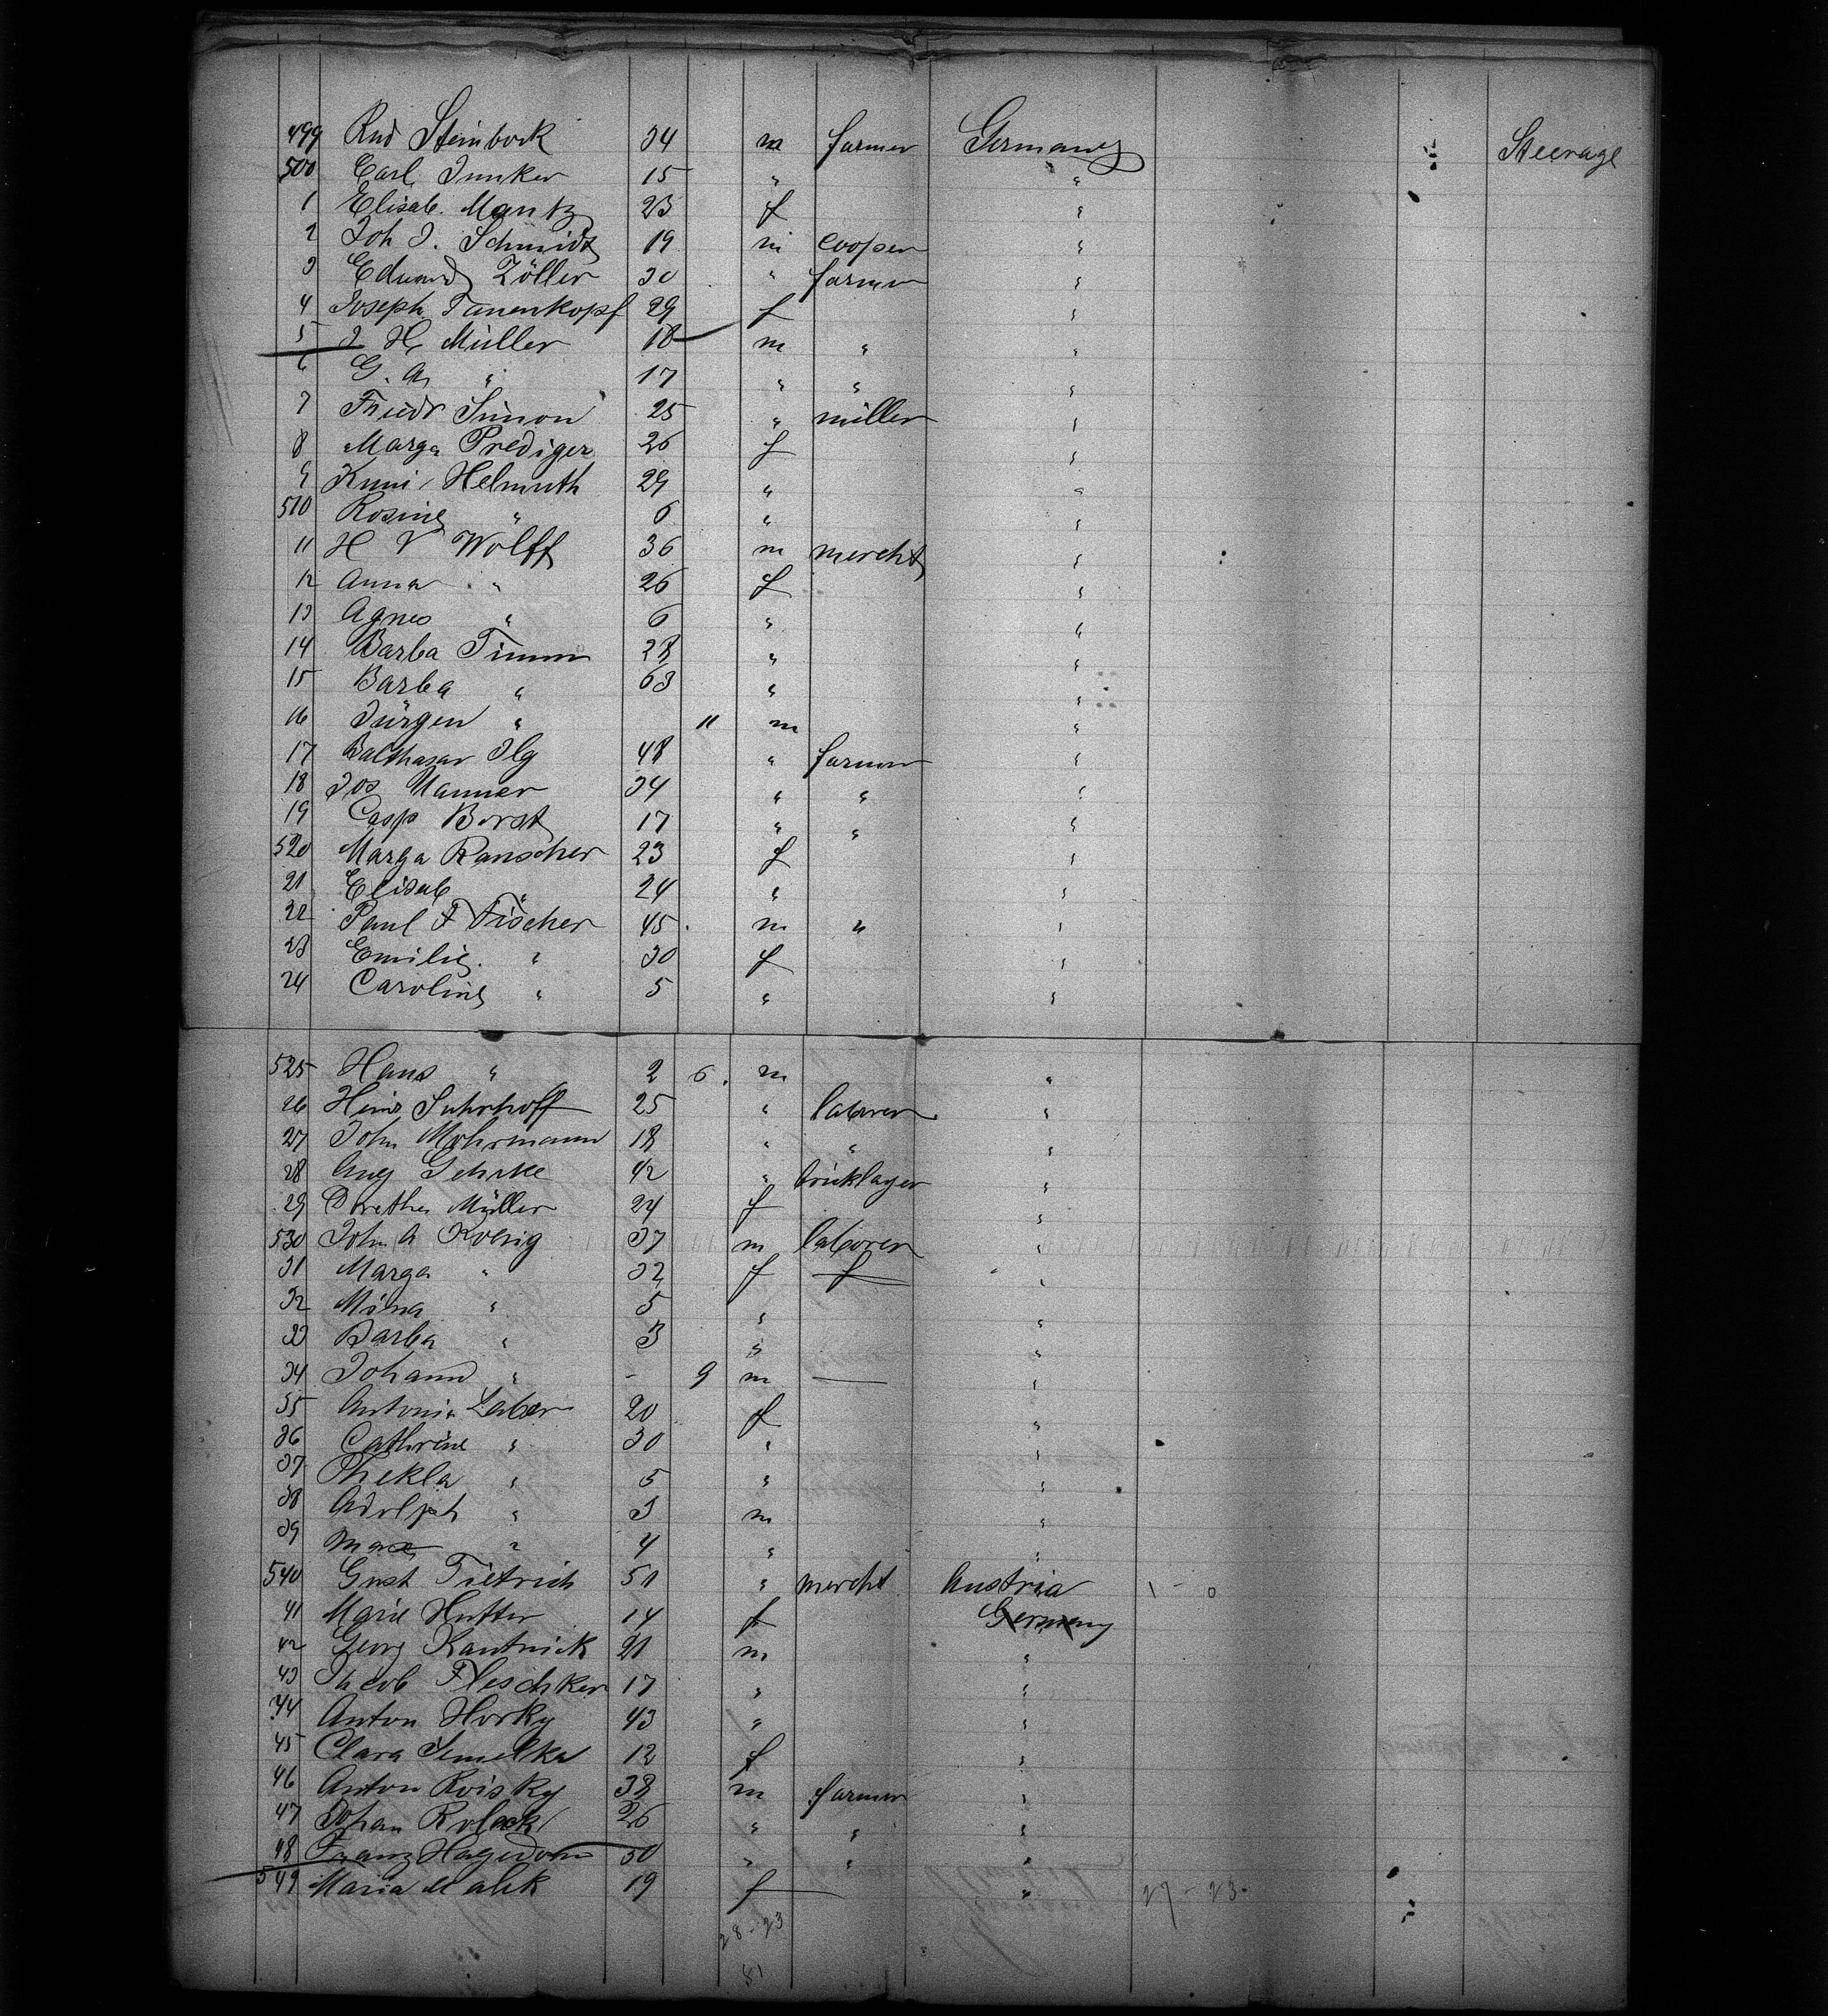 499 Rud Steinbock 34 m farmer Germany Steerage
500 Carl Junker 15 " "
1 Elisab. Mantz 23 f "
2 Joh J. Schmidt 19 m cooper "
3 Eduard Zöller 30 " farmer "
4 Joseph Tanenkopf 29 f "
5 J H Müller 18 m " "
6 G. A. " 17 " " "
7 Friedr Simon 25 " miller "
8 Marga Prediger 26 f "
9 Kuni Helmuth 29 " "
510 Rosine " 6 " "
11 H V Wolff 36 m mercht "
12 Anna " 26 f "
13 Agnes " 6 " "
14 Barba Timm 28 " "
15 Barba " 63 " "
16 Jürgen " 11 m "
17 Balthasar Ilg 48 " farmer "
18 Jos Wanner 34 " " "
19 Casp Borst 17 " " "
520 Marga Rauscher 23 f "
21 Elisab " 24 " "
22 Paul F Fischer 45 m " "
23 Emilie " 30 f "
24 Caroline " 5 " "
525 Hans " 2 6 m "
26 Heinr Suhrhoff 25 " laborer "
27 John Mohrmann 18 " " "
28 Aug Gehrke 42 " bricklayer "
29 Dorethea Müller 24 f "
530 John A Koenig 37 m laborer "
31 Marga " 32 f "
32 Mina " 5 " "
33 Barba " 3 " "
34 Johann " - 9 m — "
35 Antonia Laber 20 f "
36 Cathrine " 30 " "
37 Thekla " 5 " "
38 Adolph " 3 m "
39 Max " 4 " "
540 Gust Tietrich 51 " mercht Austria 1 - 0
41 Marie Hutter 14 f Germany
42 Georg Kautnick 21 m "
43 Jacob Fleschker 17 " "
44 Anton Horky 43 " "
45 Clara Semelka 12 f "
46 Anton Roisky 38 m farmer "
47 Johan Rolack 26 " " "
48 Franz Hagedorn 50 " " "
549 Maria Malek 19 f " 27 - 23
28 - 23
51